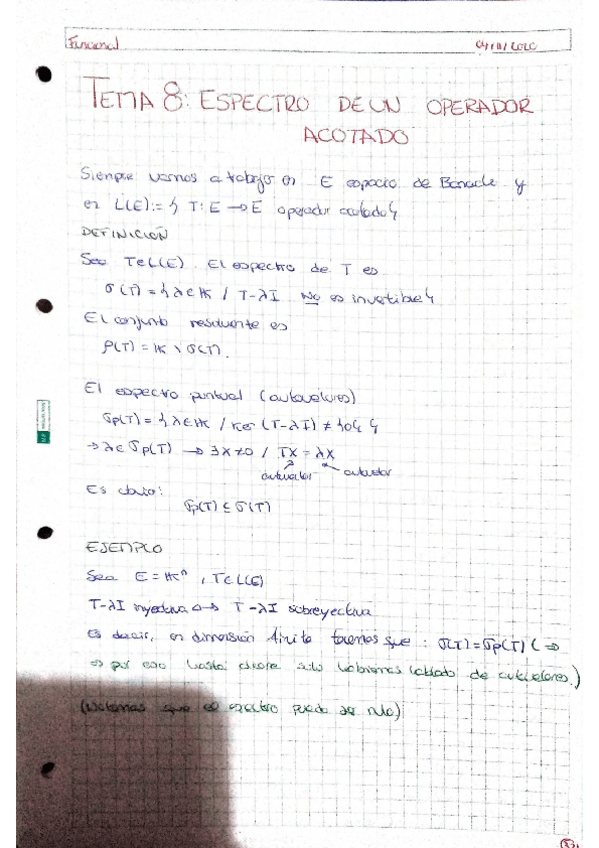 Funcional 04/11/2020
TEMA 8: ESPECTRO DE UN OPERADOR
ACOTADO
Siempre vamos a trabajar en E espacio de Banach y
en L(E):= { T: E → E operador acotado}
DEFINICIÓN
Sea T∈L(E). El espectro de T es
σ(T) = {λ∈K / T-λI No es invertible}
El conjunto resolvente es
ρ(T) = K \ σ(T).
El espectro puntual (autovalores)
σp(T) = {λ∈K / Ker (T-λI) ≠ {0}}
→ λ∈σp(T) → ∃x≠0 / Tx = λx
autovector
Es claro:
σp(T) ⊆ σ(T)
EJEMPLO
Sea E = Kⁿ, T∈L(E)
T-λI inyectiva ↔ T-λI sobreyectiva
Es decir, en dimensión finita tenemos que: σ(T) = σp(T) (⇒
es por eso hasta ahora solo habíamos hablado de autovalores.)
(Notemos que el espectro puede ser nulo)